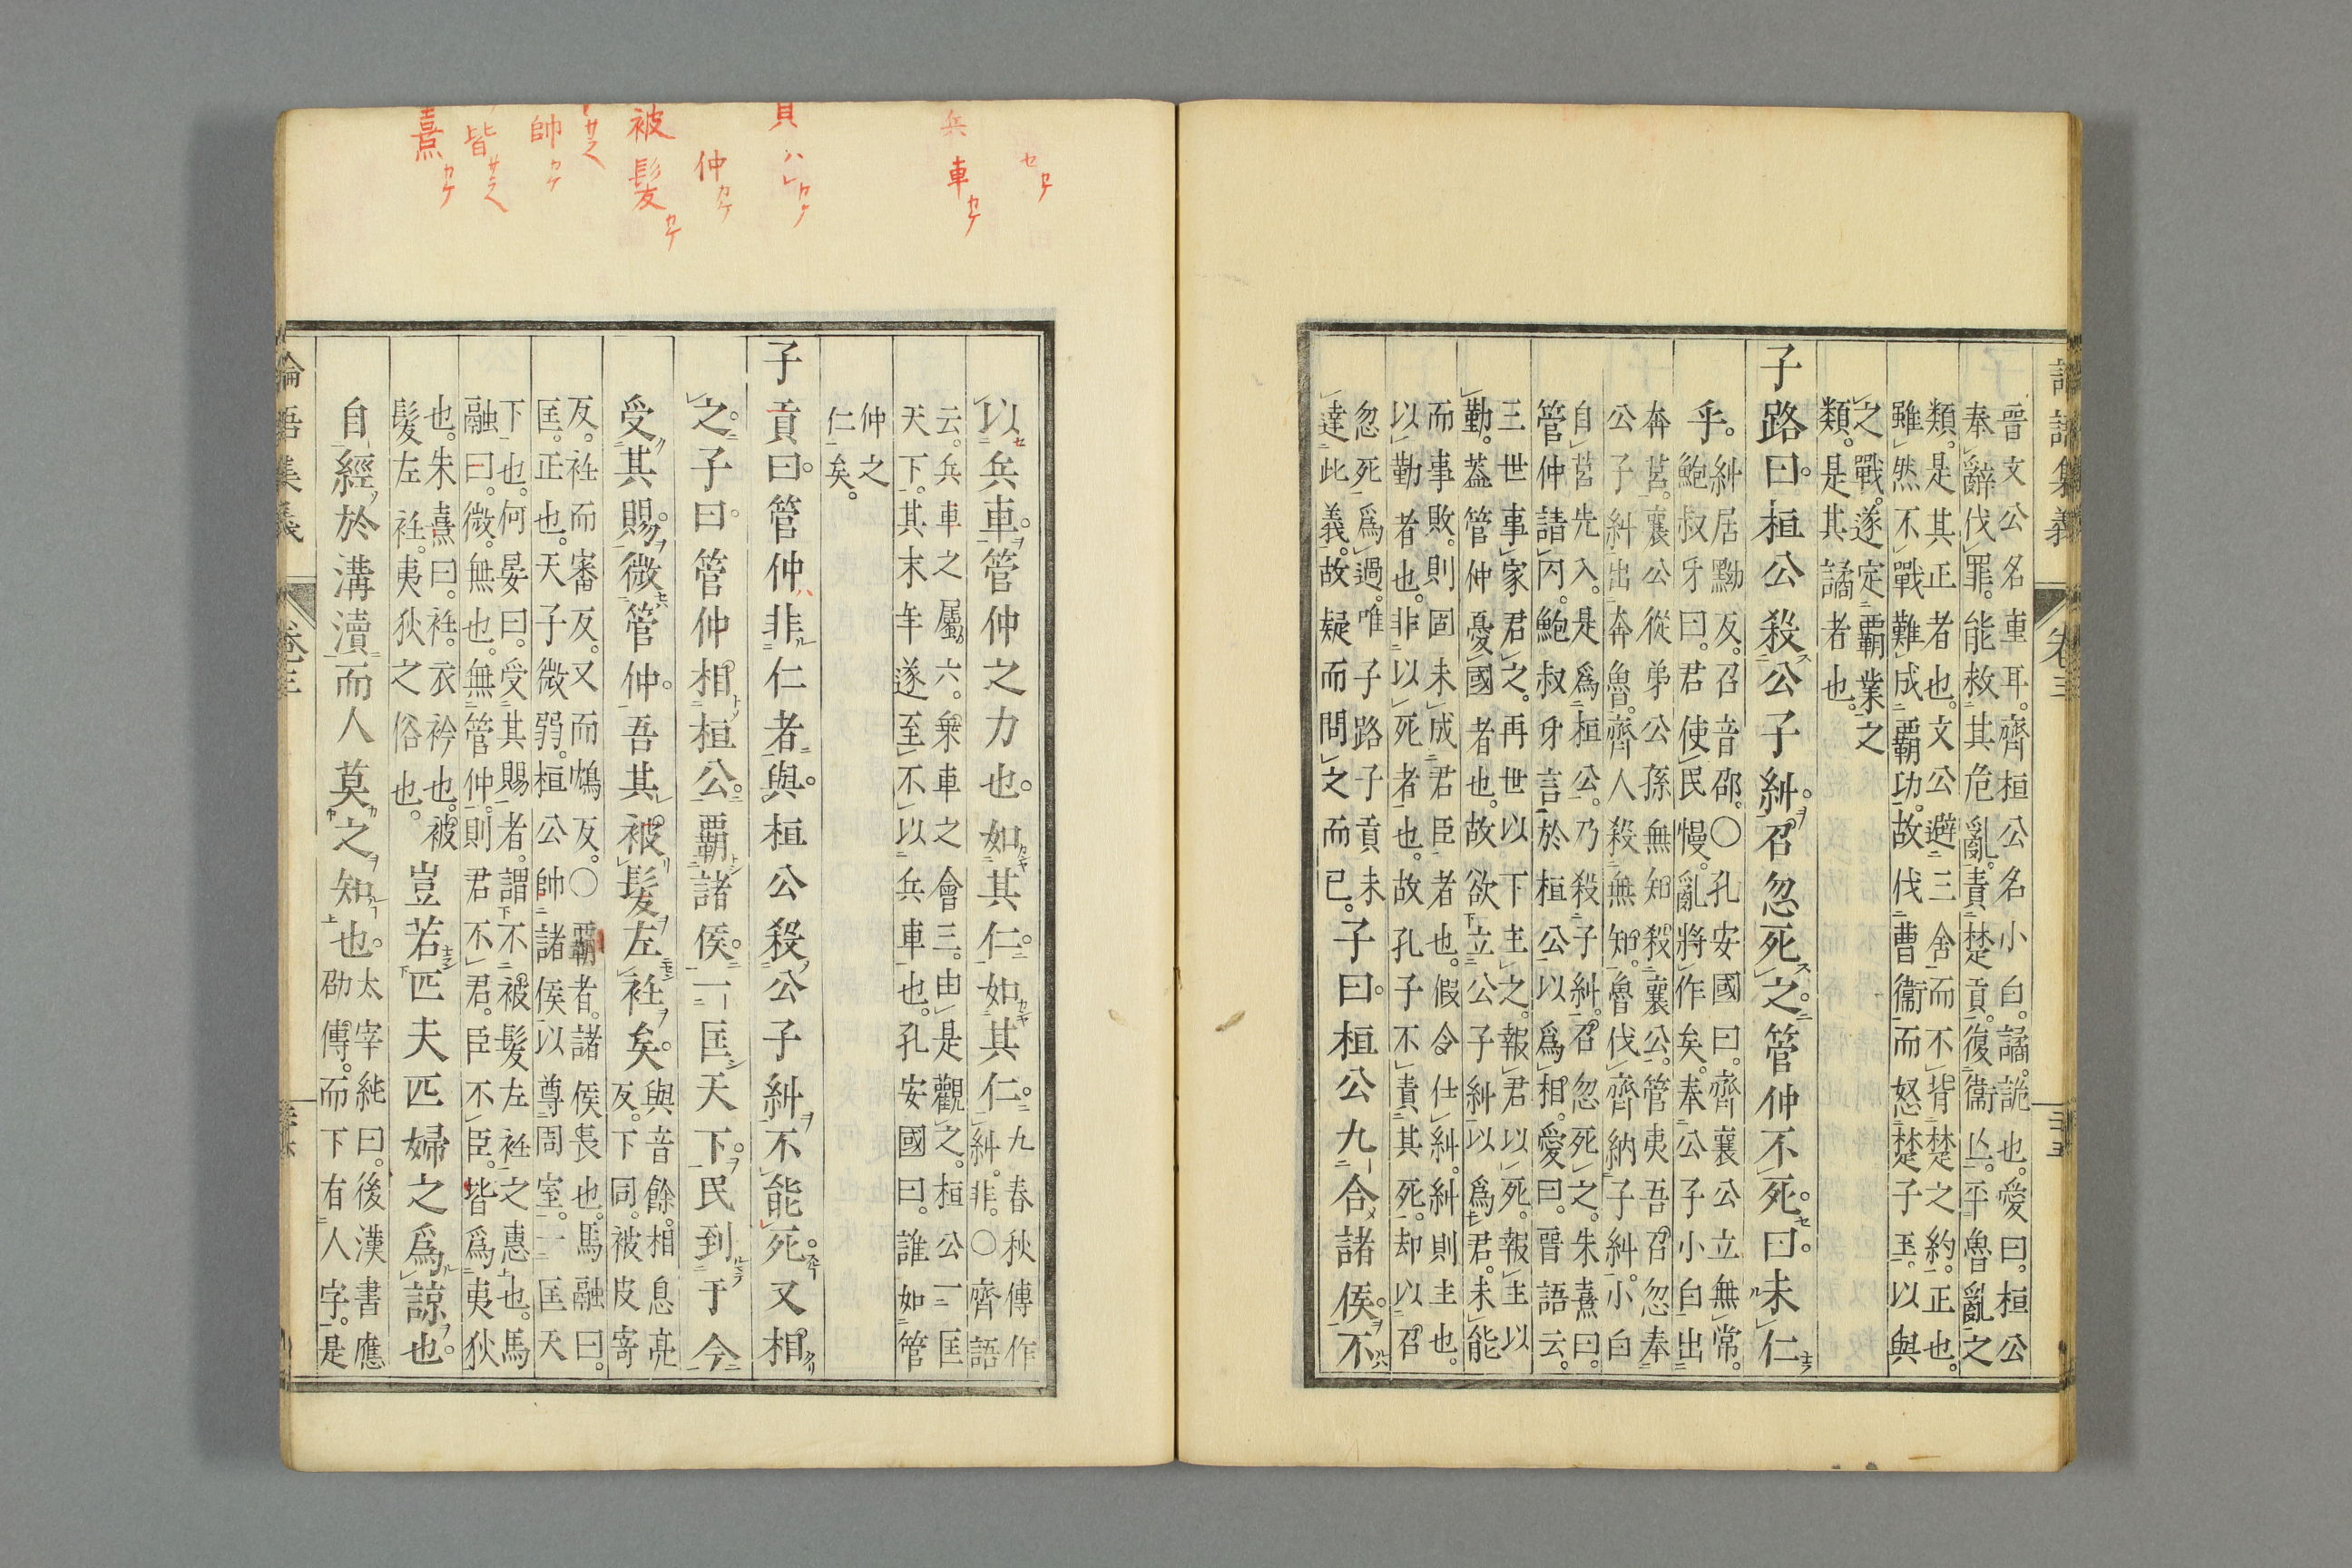 晉文公名重耳。齊桓公名小白。譎。詭也。愛曰。桓公
奉辭伐罪。能救其危亂。責楚貢。復衞亾。平魯亂之
類。是其正者也。文公避三舍而不背楚之約。正也。
雖然不戰難成覇功。故伐曹衞而怒楚子玉。以與
之戰。遂定覇業之
類。是其譎者也。
子路曰。桓公殺公子糾。召忽死之。管仲不死。曰。未仁
乎。
糾居黝反。召音邵。〇孔安國曰。齊襄公立無常。
鮑叔牙曰。君使民慢。亂將作矣。奉公子小白出
奔莒。襄公從弟公孫無知殺襄公。管夷吾召忽奉
公子糾出奔魯。齊人殺無知。魯伐齊納子糾。小白
自莒先入。是爲桓公。乃殺子糾。召忽死之。朱熹曰。
管仲請囚。鮑叔牙言於桓公以爲相。愛曰。晉語云。
三世事家君之。再世以下主之。報君以死。報主以
勤。葢管仲憂國者也。故欲立公子糾以爲君。未能
而事敗。則固未成君臣者也。假令仕糾。糾則主也。
以勤者也。非以死者也。故孔子不責其死。却以召
忽死爲過。唯子路子貢未
達此義。故疑而問之而已。
子曰。桓公九合諸侯。不
以兵車。管仲之力也。如其仁。如其仁。
九春秋傳作
糾。非。〇齊語
云。兵車之屬六。乘車之會三。由是觀之。桓公一匡
天下。其末年遂至不以兵車也。孔安國曰。誰如管
仲之
仁矣。
子貢曰。管仲非仁者與。桓公殺公子糾。不能死。又相
之。子曰。管仲相桓公。覇諸侯。一匡天下。民到于今
受其賜。微管仲。吾其被髮左衽矣。
與音餘。相息亮
反。下同。被皮寄
反。衽而審反。又而鴆反。〇覇者。諸侯長也。馬融曰。
匡。正也。天子微弱。桓公帥諸侯以尊周室。一匡天
下也。何晏曰。受其賜者。謂不被髮左衽之惠也。馬
融曰。微。無也。無管仲。則君不君。臣不臣。皆爲夷狄
也。朱熹曰。衽。衣衿也。被
髮左衽。夷狄之俗也。
豈若匹夫匹婦之爲諒也。
自經於溝瀆而人莫之知也。
太宰純曰。後漢書應
劭傳。而下有人字。是
兵車カケ
貝ハレカケ
仲カケ
被髮カケ
帥カケ
皆サラヘ
熹カケ
論語集義
卷三